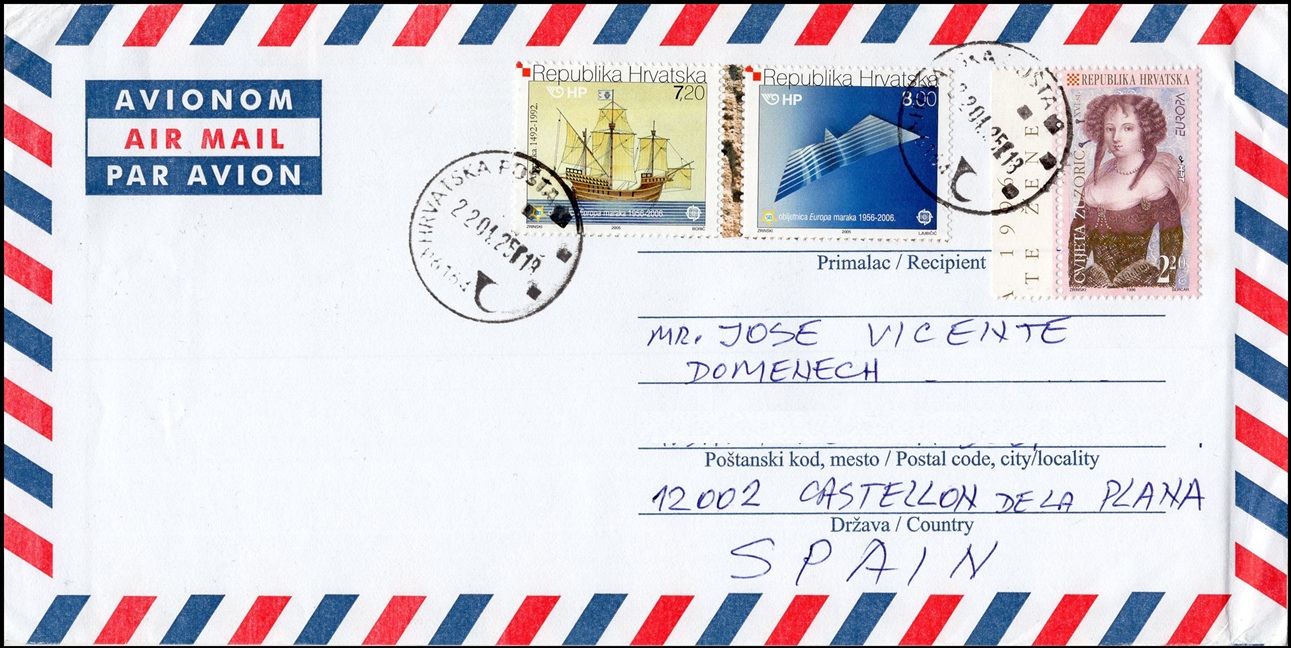 AVIONOM
AIR MAIL
PAR AVION
Republika Hrvatska
7,20
HP
1492-1992.
Europa maraka 1956-2006.
ZRINSKI 2005 BORIĆ
Republika Hrvatska
8,00
HP
obljetnica Europa maraka 1956-2006.
ZRINSKI 2005 LJUBIČIĆ
REPUBLIKA HRVATSKA
EUROPA
CVIJETA ZUZORIĆ
2,20
ZRINSKI 1996
HRVATSKA POŠTA
22.01.25
Primalac / Recipient
MR. JOSE VICENTE
DOMENECH
Poštanski kod, mesto / Postal code, city/locality
12002 CASTELLON DE LA PLANA
Država / Country
SPAIN